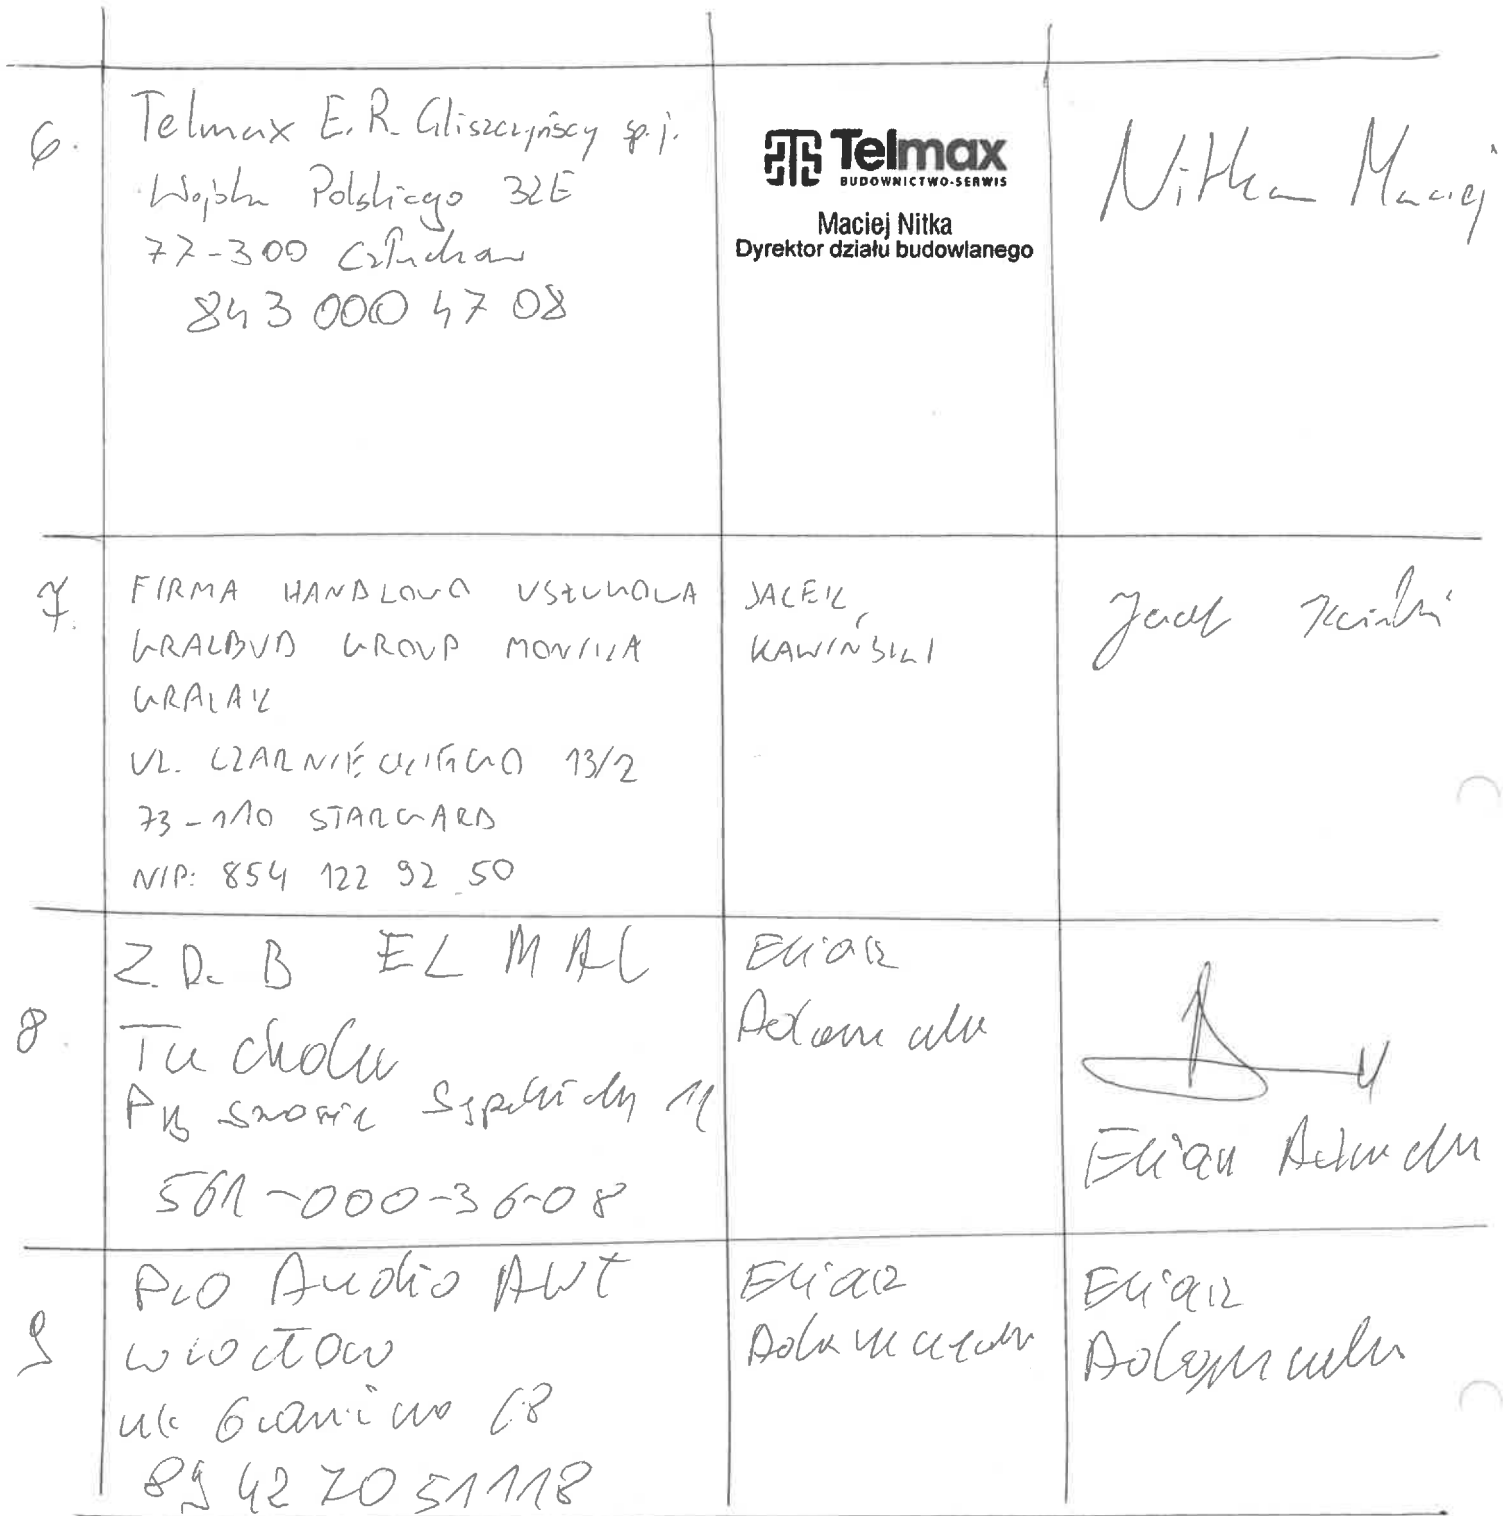 6.
Telmax E.R. Gliszczyńscy sp.j.
Wojska Polskiego 32E
77-300 Człuchów
843 000 47 08
Telmax
BUDOWNICTWO-SERWIS
Maciej Nitka
Dyrektor działu budowlanego
Nitka Maciej
7.
FIRMA HANDLOWO USŁUGOWA
GRALBUD GROUP MONIKA
GRALAK
UL. CZARNIECKIEGO 13/2
73-110 STARGARD
NIP: 854 122 92 50
JACEK
KAWIŃSKI
Jacek
8.
Z.D. B EL MAL
Tuchola
11
561-000-36-08
Eliasz
Eliasz
9
Pro Audio AWT
Wrocław
ul Graniczna
89 42 70 51118
Eliasz
Eliasz